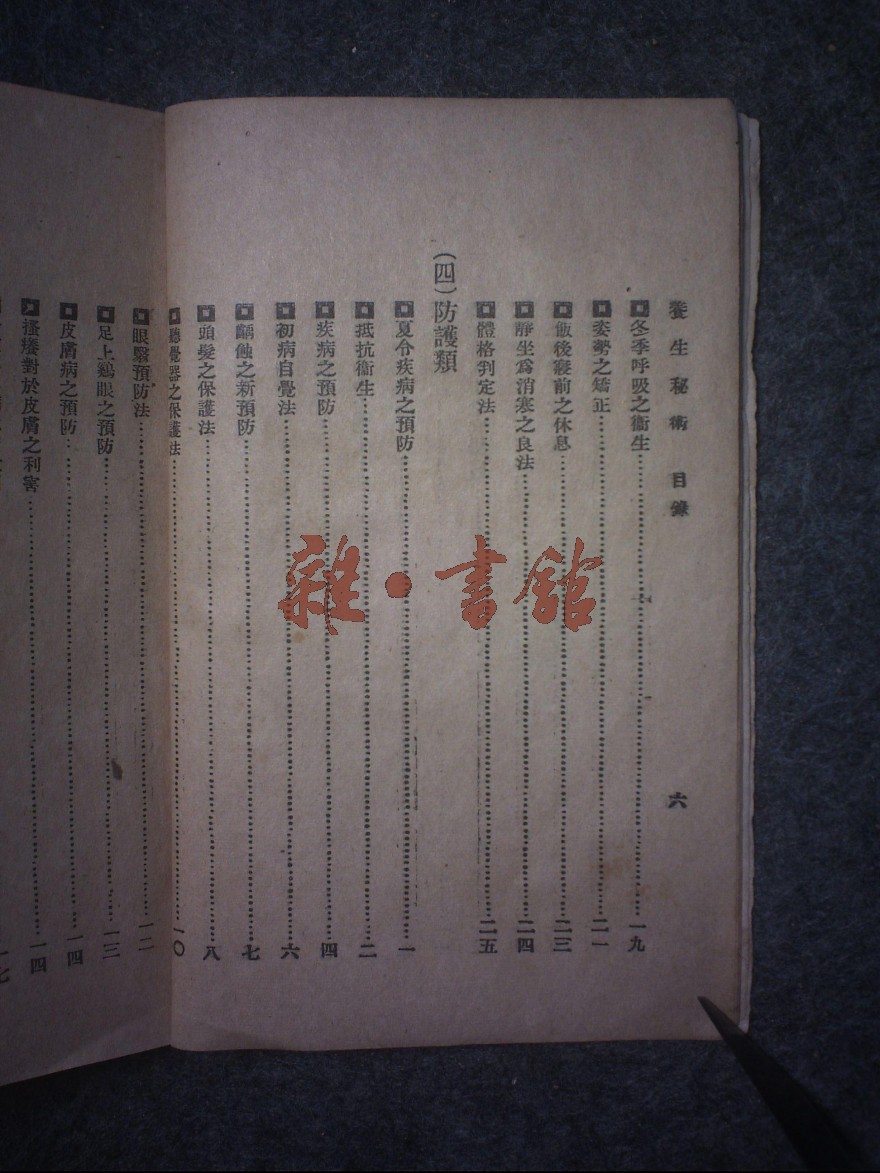 養生秘術 目錄 六
冬季呼吸之衞生 一九
姿勢之矯正 二一
飯後寢前之休息 二三
靜坐爲消寒之良法 二四
體格判定法 二五
(四)防護類
夏令疾病之預防 一
抵抗衞生 二
疾病之預防 四
初病自覺法 六
齲蝕之新預防 七
頭髮之保護法 八
聽覺器之保護法 一〇
眼翳預防法 一二
足上鷄眼之預防 一三
皮膚病之預防 一四
搔癢對於皮膚之利害 一四
一七
雜·書館